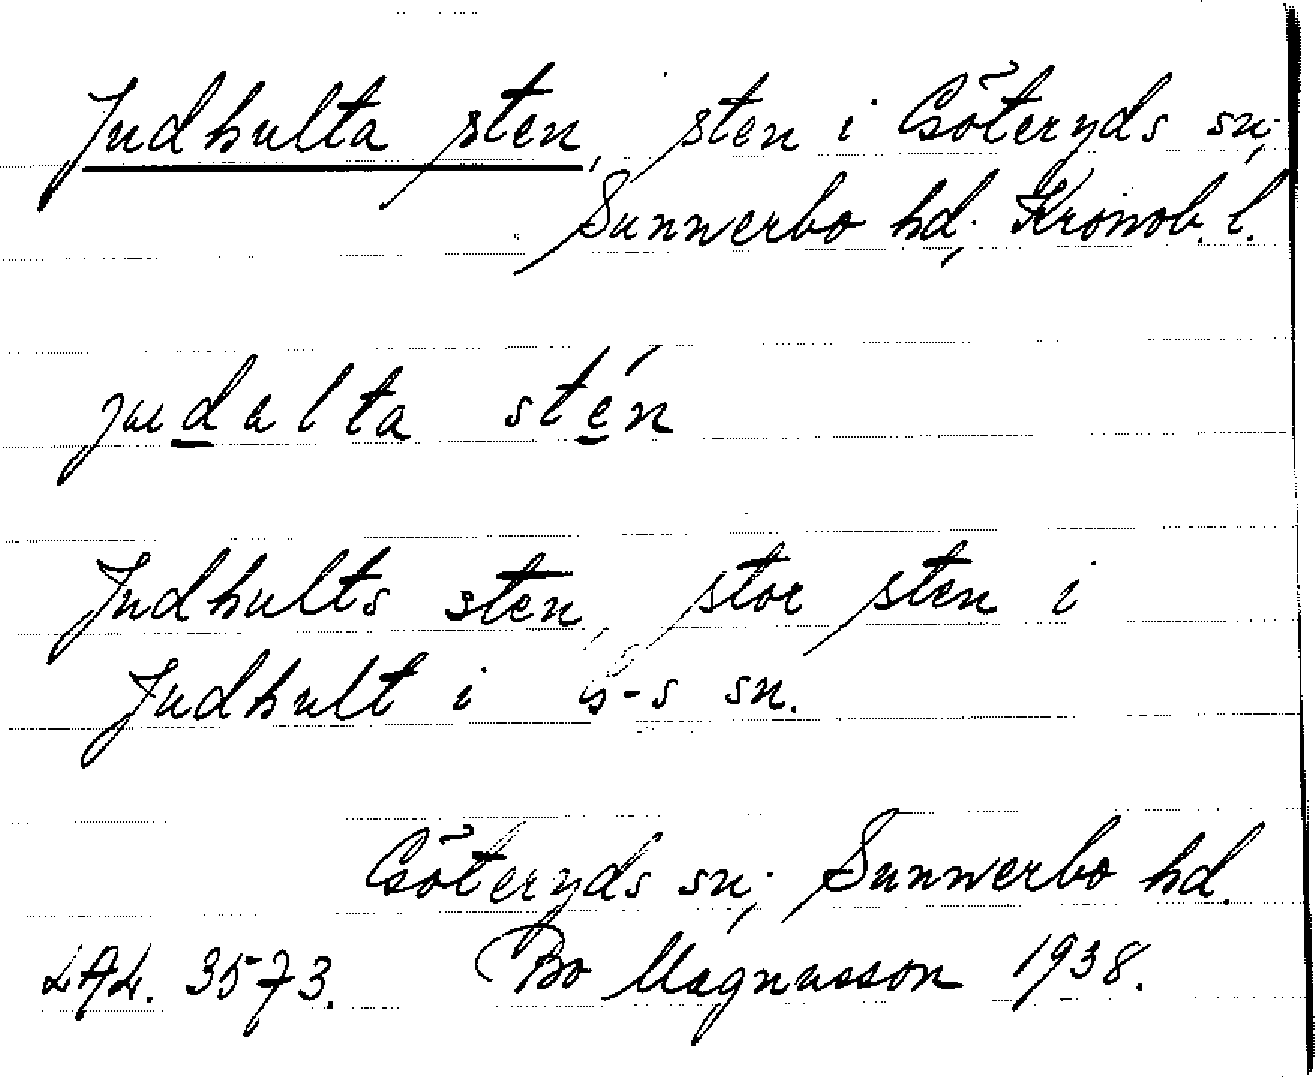 Judhulta sten, sten i Göteryds sn;
Sunnerbo hd; Kronob. l.
judalta stén
Judhults sten, stor sten i
Judhult i G-s sn.
Göteryds sn; Sunnerbo hd.
LAL. 3573. Bo Magnusson 1938.